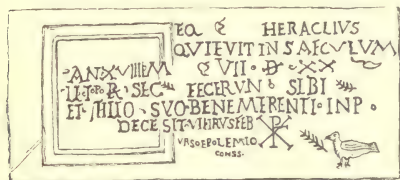 EQ HERACLIVS
QVIEVIT IN SAECVLVM
AN XVIIII M VII D XX
SEC FECERVN SIBI
ET SVO BENEMERENTI IN P
DECESIT VII IDVS FEB
VRSO ET POLEMIO
CONSS.